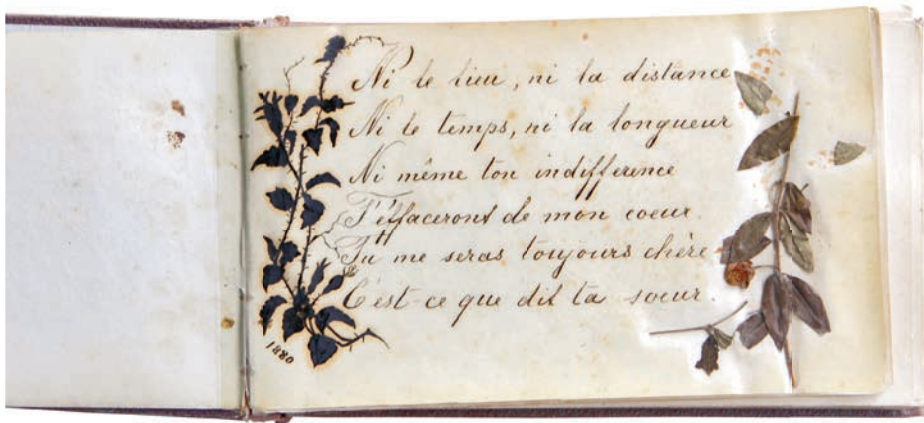 Ni le lieu, ni la distance
Ni le temps, ni la longueur
Ni même ton indifference
T'éffaceront de mon coeur.
Tu me seras toujours chère
C'est-ce que dit ta soeur.
1880